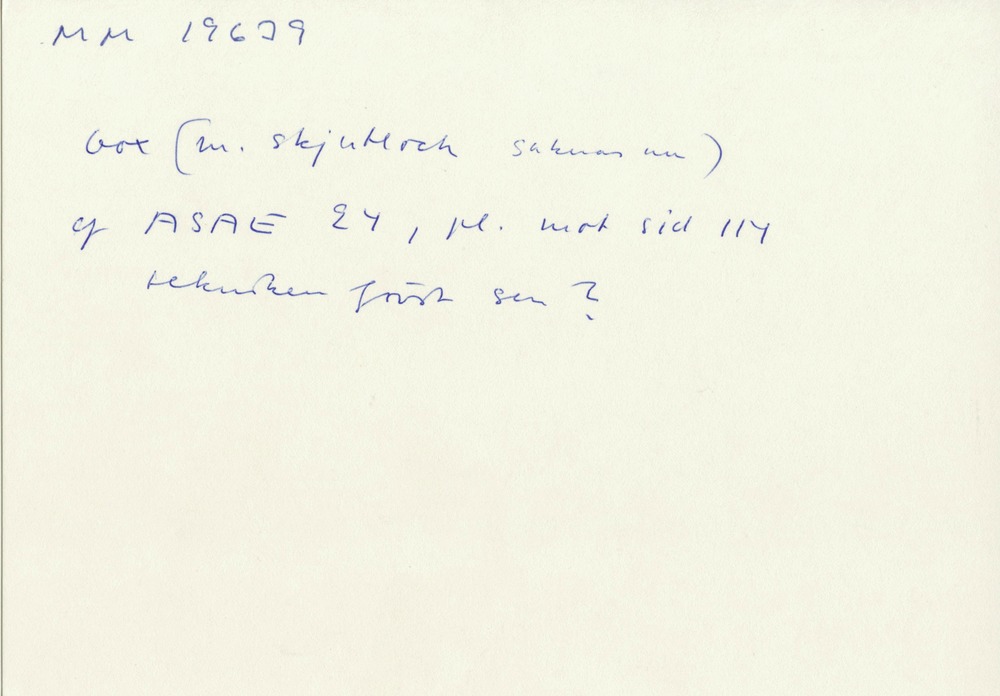 MM 19679
box (m. skjutlock saknas nu)
cf ASAE 24, pl. mot sid 114
tekniken först sen?